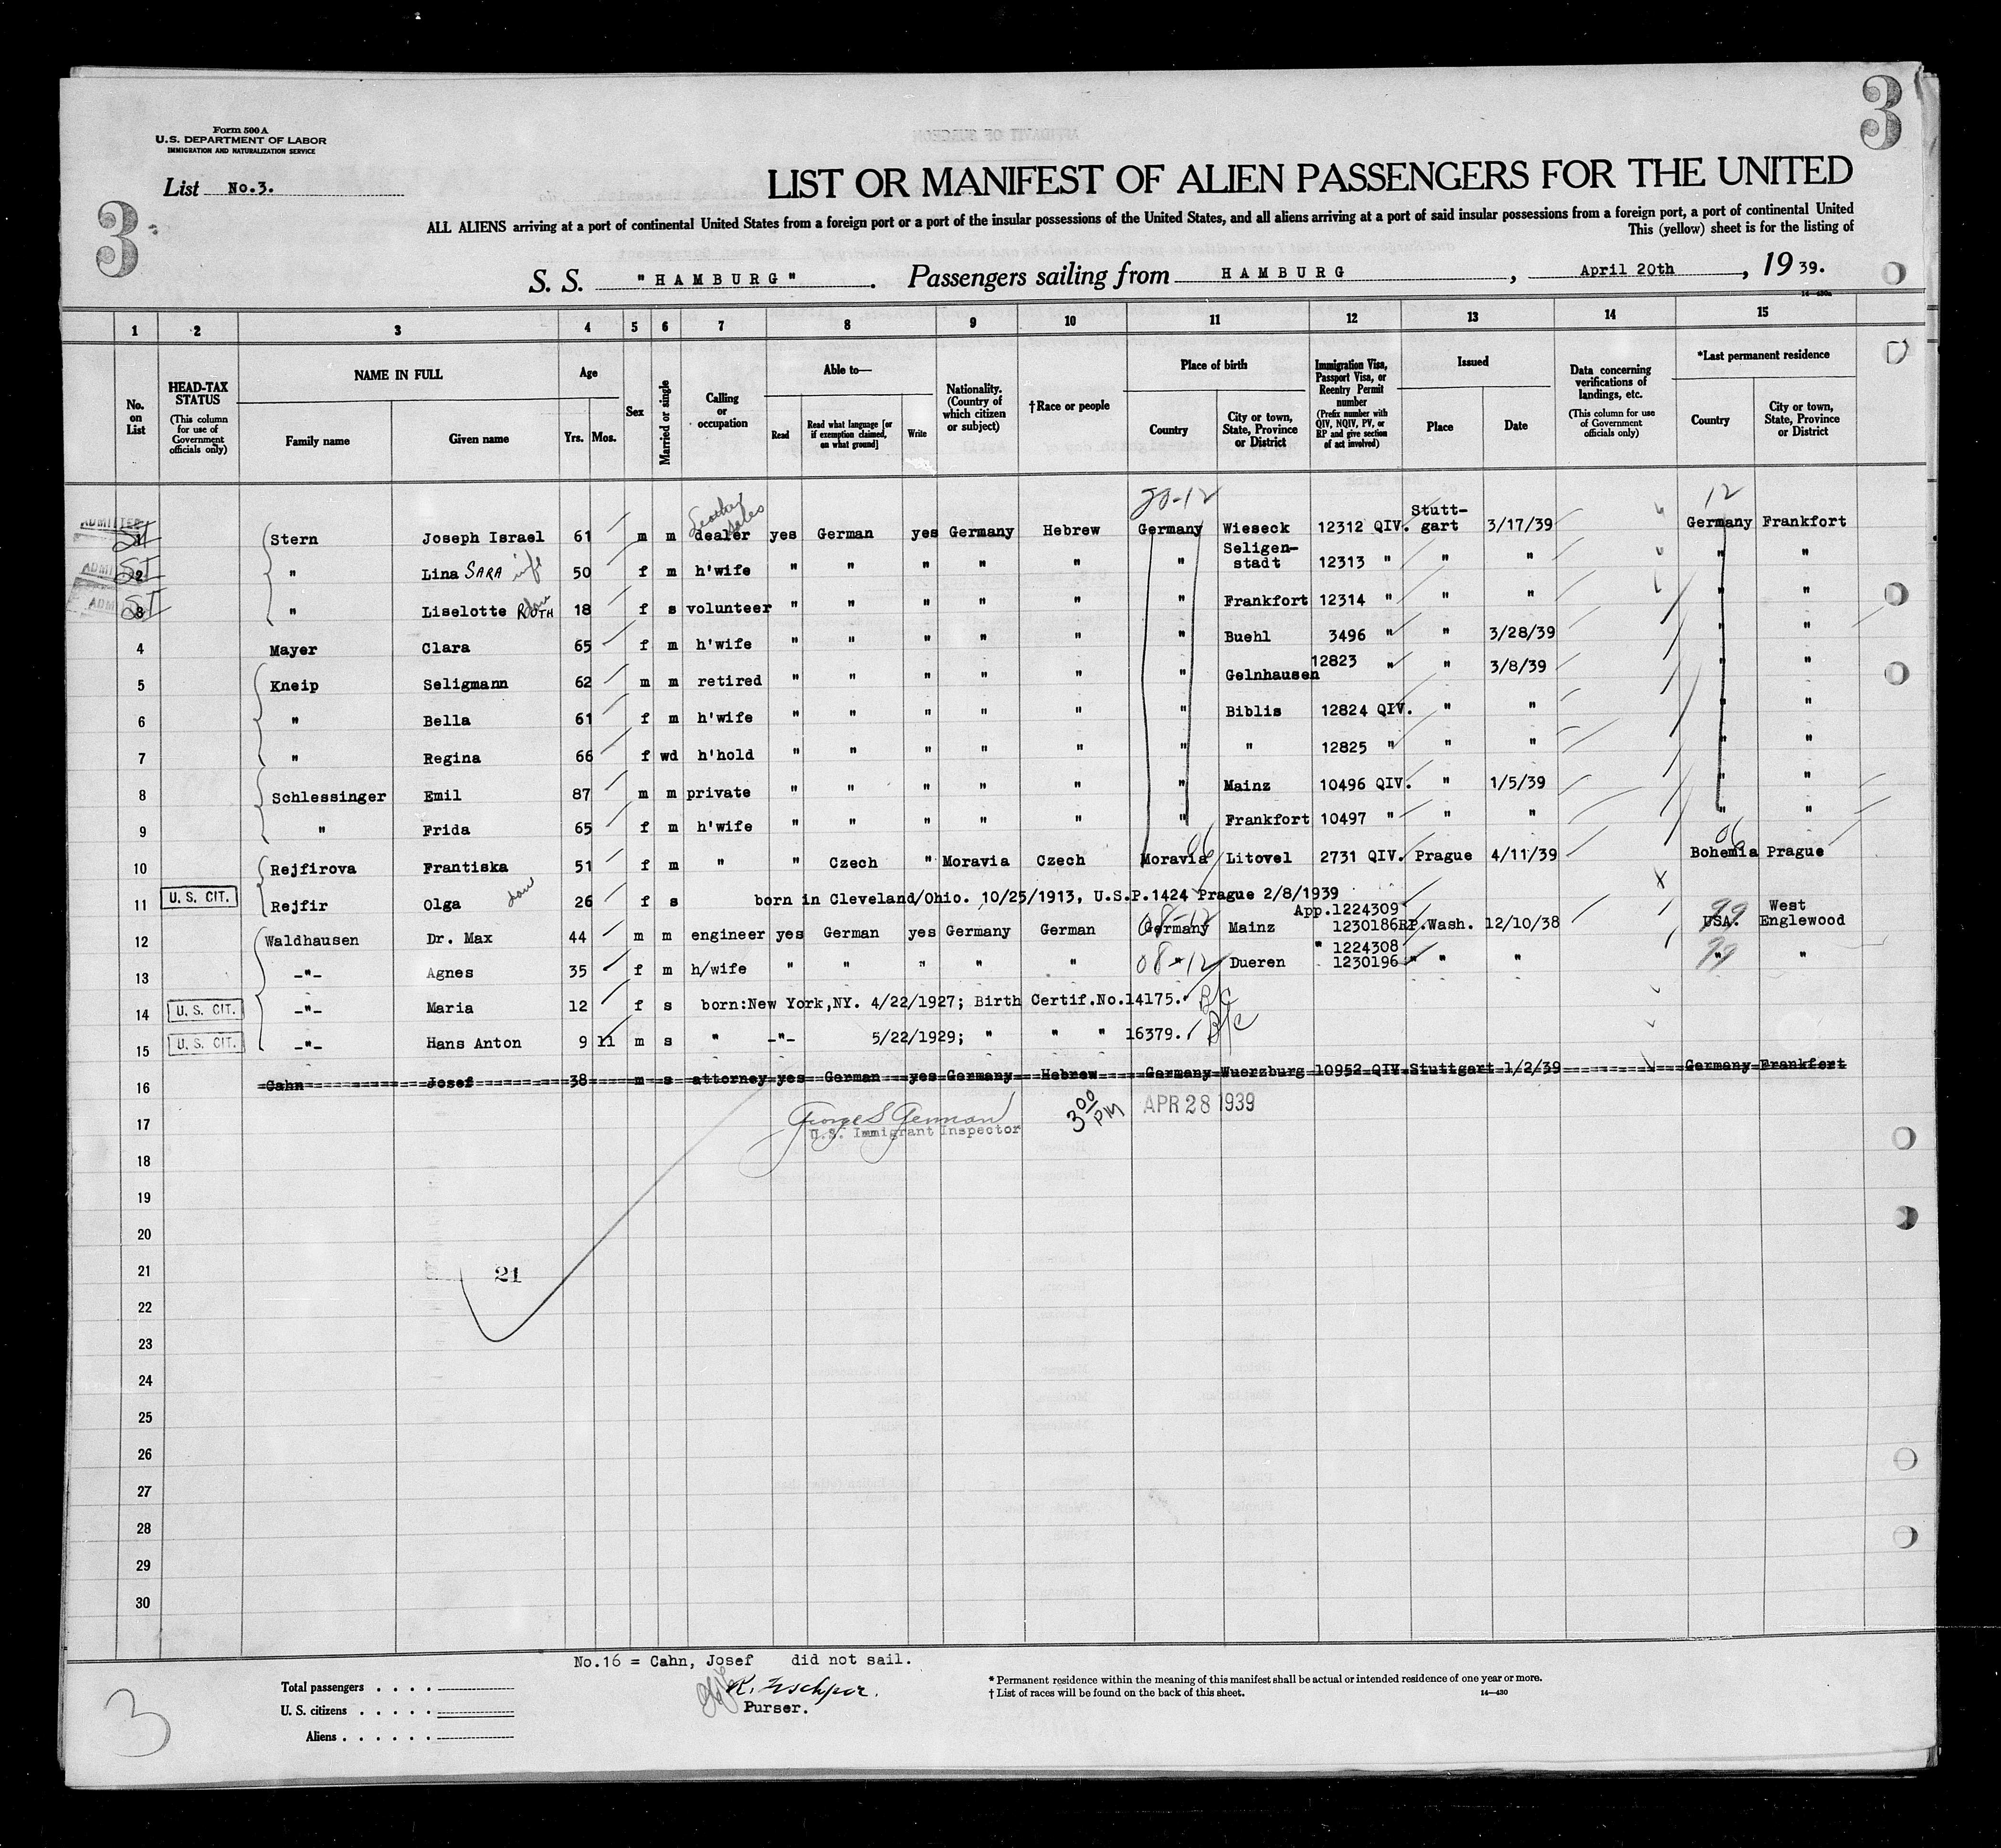 3
Form 500 A
U.S. DEPARTMENT OF LABOR
IMMIGRATION AND NATURALIZATION SERVICE
List No.3.
3
LIST OR MANIFEST OF ALIEN PASSENGERS FOR THE UNITED
ALL ALIENS arriving at a port of continental United States from a foreign port or a port of the insular possessions of the United States, and all aliens arriving at a port of said insular possessions from a foreign port, a port of continental United
This (yellow) sheet is for the listing of
S. S. "HAMBURG". Passengers sailing from HAMBURG, April 20th, 1939.
1 2 3 4 5 6 7 8 9 10 11 12 13 14 15
No. on List
HEAD-TAX STATUS (This column for use of Government officials only)
NAME IN FULL Family name Given name
Age Yrs. Mos.
Sex
Married or single
Calling or occupation
Able to— Read Read what language [or if exemption claimed, on what ground] Write
Nationality. (Country of which citizen or subject)
†Race or people
Place of birth Country City or town, State, Province or District
Immigration Visa, Passport Visa, or Reentry Permit number (Prefix number with QIV, NQIV, PV, or RP and give section of act involved)
Issued Place Date
Data concerning verifications of landings, etc. (This column for use of Government officials only)
*Last permanent residence Country City or town, State, Province or District
20-12 12
ADMITTED SI 1 Stern Joseph Israel 61 m m Leather Sales dealer yes German yes Germany Hebrew Germany Wieseck 12312 QIV. Stutt-gart 3/17/39 Germany Frankfort
SI 2 " Lina SARA wife 50 f m h'wife " " " " " " Seligen-stadt 12313 " " " " "
SI 3 " Liselotte RUTH dau 18 f s volunteer " " " " " " Frankfort 12314 " " " " "
4 Mayer Clara 65 f m h'wife " " " " " " Buehl 3496 " " 3/28/39 " "
5 Kneip Seligmann 62 m m retired " " " " " " Gelnhausen 12823 " " 3/8/39 " "
6 " Bella 61 f m h'wife " " " " " " Biblis 12824 QIV. " " " "
7 " Regina 66 f wd h'hold " " " " " " " 12825 " " " " "
8 Schlessinger Emil 87 m m private " " " " " " Mainz 10496 QIV. " 1/5/39 " "
9 " Frida 65 f m h'wife " " " " " " Frankfort 10497 " " " " "
06 06
10 Rejfirova Frantiska 51 f m " " Czech " Moravia Czech Moravia Litovel 2731 QIV. Prague 4/11/39 Bohemia Prague
U. S. CIT. 11 Rejfir Olga dau 26 f s born in Cleveland/Ohio. 10/25/1913, U.S.P.1424 Prague 2/8/1939 X
12 Waldhausen Dr. Max 44 m m engineer yes German yes Germany German 08-12 Germany Mainz App.1224309 1230186RP.Wash. 12/10/38 99 USA. West Englewood
13 -"- Agnes 35 f m h/wife " " " " " 08-12 " Dueren " 1224308 1230196 " " " 99 " "
U. S. CIT. 14 -"- Maria 12 f s born:New York,NY. 4/22/1927; Birth Certif.No.14175. B/C
U. S. CIT. 15 -"- Hans Anton 9 11 m s " -"- 5/22/1929; " " " 16379. B/C
16 Cahn Josef 38 m s attorney yes German yes Germany Hebrew Germany Wuerzburg 10952 QIV.Stuttgart 1/2/39 Germany Frankfort
17 George S. German 3 00 PM APR 28 1939
U.S. Immigrant Inspector
18
19
20
21 21
22
23
24
25
26
27
28
29
30
No.16 = Cahn, Josef did not sail.
Total passengers . . . .
U. S. citizens . . . . .
Aliens . . . . . .
Purser.
* Permanent residence within the meaning of this manifest shall be actual or intended residence of one year or more.
† List of races will be found on the back of this sheet.
14—430
3